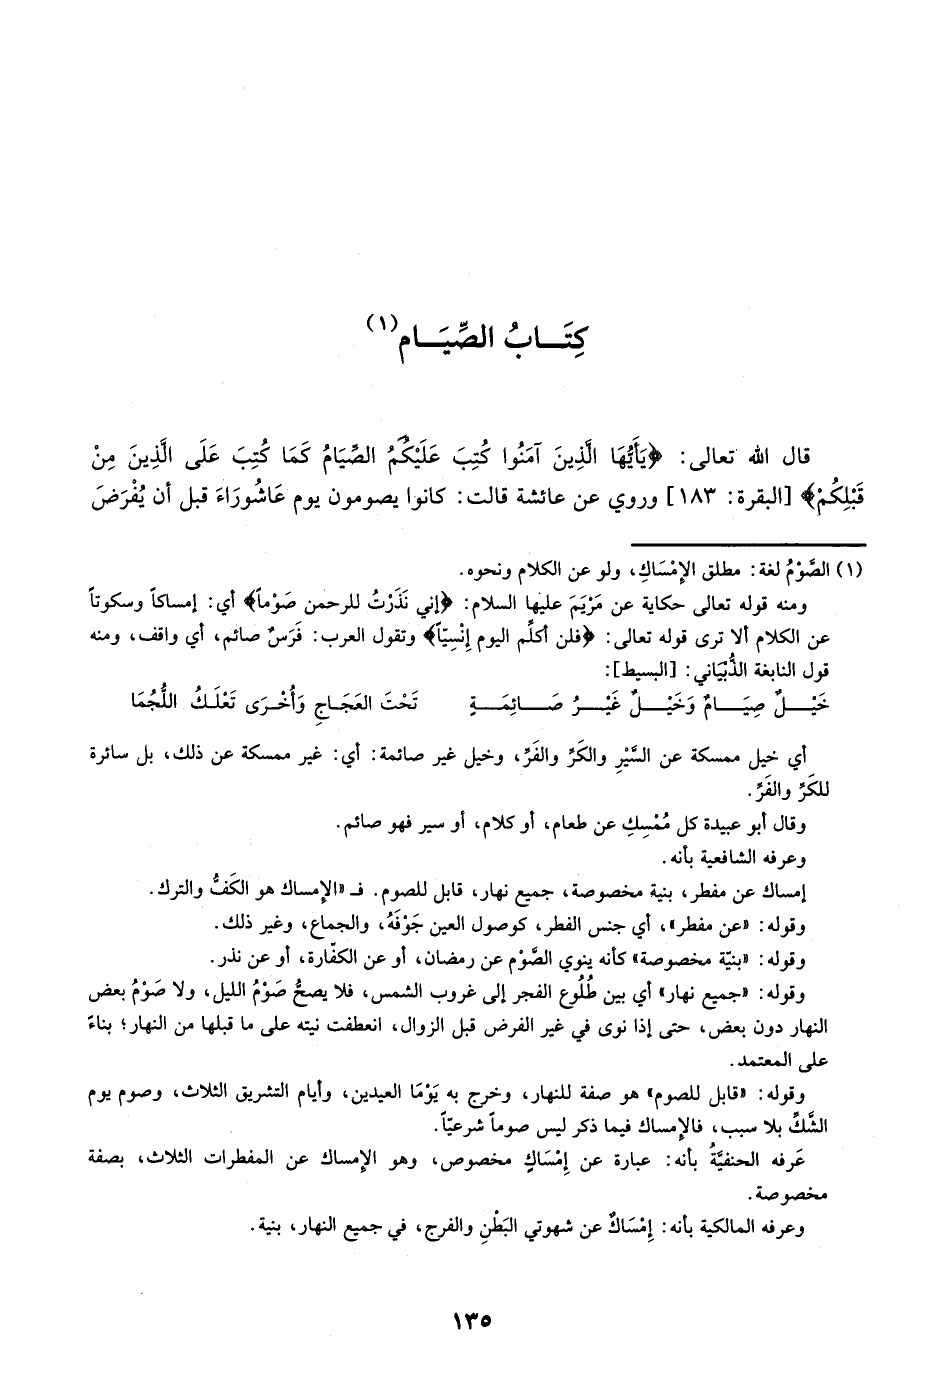 كِتَـــابُ الصِّيَـــام(١)
قال الله تعالى: ﴿يَأَيُّهَا الَّذِينَ آمَنُوا كُتِبَ عَلَيْكُمُ الصِّيَامُ كَمَا كُتِبَ عَلَى الَّذِينَ مِنْ
قَبْلِكُمْ﴾ [البقرة: ١٨٣] وروي عن عائشة قالت: كانوا يصومون يوم عَاشُورَاءَ قبل أن يُفْرَضَ
(١) الصَّوْمُ لغة: مطلق الإِمْسَاكِ، ولو عن الكلام ونحوه.
ومنه قوله تعالى حكاية عن مَرْيَمَ عليها السلام: ﴿إني نَذَرْتُ للرحمن صَوْماً﴾ أي: إمساكاً وسكوتاً
عن الكلام ألا ترى قوله تعالى: ﴿فلن أكلِّم اليوم إِنْسِيّاً﴾ وتقول العرب: فَرَسٌ صائم، أي واقف، ومنه
قول النابغة الذُّبْيَاني: [البسيط]:
خَيْـــلٌ صِيَـــامٌ وَخَيْـــلٌ غَيْـــرُ صَـــائِمَـــةٍ تَحْتَ العَجَاجِ وَأُخْـرَى تَعْلَـكُ اللُّجُمَا
أي خيل ممسكة عن السَّيْرِ والكَرِّ والفَرِّ، وخيل غير صائمة: أي: غير ممسكة عن ذلك، بل سائرة
للكَرِّ والفَرِّ.
وقال أبو عبيدة كل مُمْسِكٍ عن طعام، أو كلام، أو سير فهو صائم.
وعرفه الشافعية بأنه.
إمساك عن مفطر، بنية مخصوصة، جميع نهار، قابل للصوم. فـ «الإمساك هو الكَفُّ والترك.
وقوله: «عن مفطر»، أي جنس الفطر، كوصول العين جَوْفَهُ، والجماع، وغير ذلك.
وقوله: «بنيّة مخصوصة» كأنه ينوي الصَّوْم عن رمضان، أو عن الكفّارة، أو عن نذر.
وقوله: «جميع نهار» أي بين طُلُوع الفجر إلى غروب الشمس، فلا يصحُّ صَوْمُ الليل، ولا صَوْمُ بعض
النهار دون بعض، حتى إذا نوى في غير الفرض قبل الزوال، انعطفت نيته على ما قبلها من النهار؛ بناءً
على المعتمد.
وقوله: «قابل للصوم» هو صفة للنهار، وخرج به يَوْمَا العيدين، وأيام التشريق الثلاث، وصوم يوم
الشَّكِّ بلا سبب، فالإمساك فيما ذكر ليس صوماً شرعيّاً.
عَرفه الحنفيَّةُ بأنه: عبارة عن إِمْسَاكٍ مخصوص، وهو الإمساك عن المفطرات الثلاث، بصفة
مخصوصة.
وعرفه المالكية بأنه: إِمْسَاكٌ عن شهوتي البَطْنِ والفرج، في جميع النهار، بنية.
١٣٥